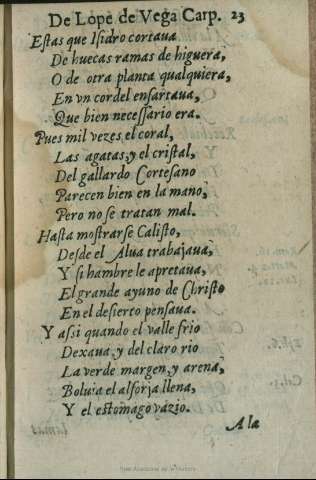 De Lope de Vega Carp. 23
Estas que Isidro cortaua
De huecas ramas de higuera,
O de otra planta qualquiera,
En vn cordel ensartaua,
Que bien necessario era.
Pues mil vezes el coral,
Las agatas, y el cristal,
Del gallardo Cortesano
Parecen bien en la mano,
Pero no se tratan mal.
Hasta mostrarse Calisto,
Desde el Alua trabajaua,
Y si hambre le apretaua,
El grande ayuno de Christo
En el desierto pensaua.
Y assi quando el valle frio
Dexaua, y del claro rio
La verde margen, y arena,
Boluia el alforja llena,
Y el estomago vazio.
A la